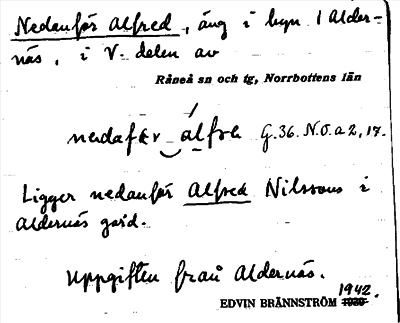 Nedanför Alfred, äng i byn 1 Alder-
näs, i V. delen av
Råneå sn och tg, Norrbottens län
nedafær alfre G.36. N.O. a 2, 17.
Ligger nedanför Alfred Nilssons i
Aldernäs gård.
Uppgiften från Aldernäs.
1942.
EDVIN BRÄNNSTRÖM